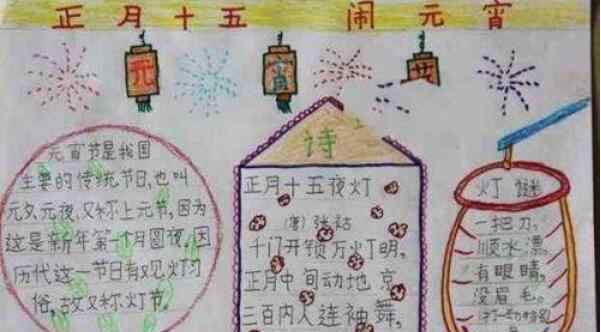 正月十五 闹元宵
元 宵
元宵节是我国
主要的传统节日,也叫
元夕、元夜,又称上元节,因为
这是新年第一个月圆夜,因
历代这一节日有观灯习
俗,故又称灯节。
诗
正月十五夜灯
(唐)张祜
千门开锁万灯明,
正月中旬动地京,
三百内人连袖舞。
灯谜
一把刀,
顺水漂,
有眼睛,
没眉毛。